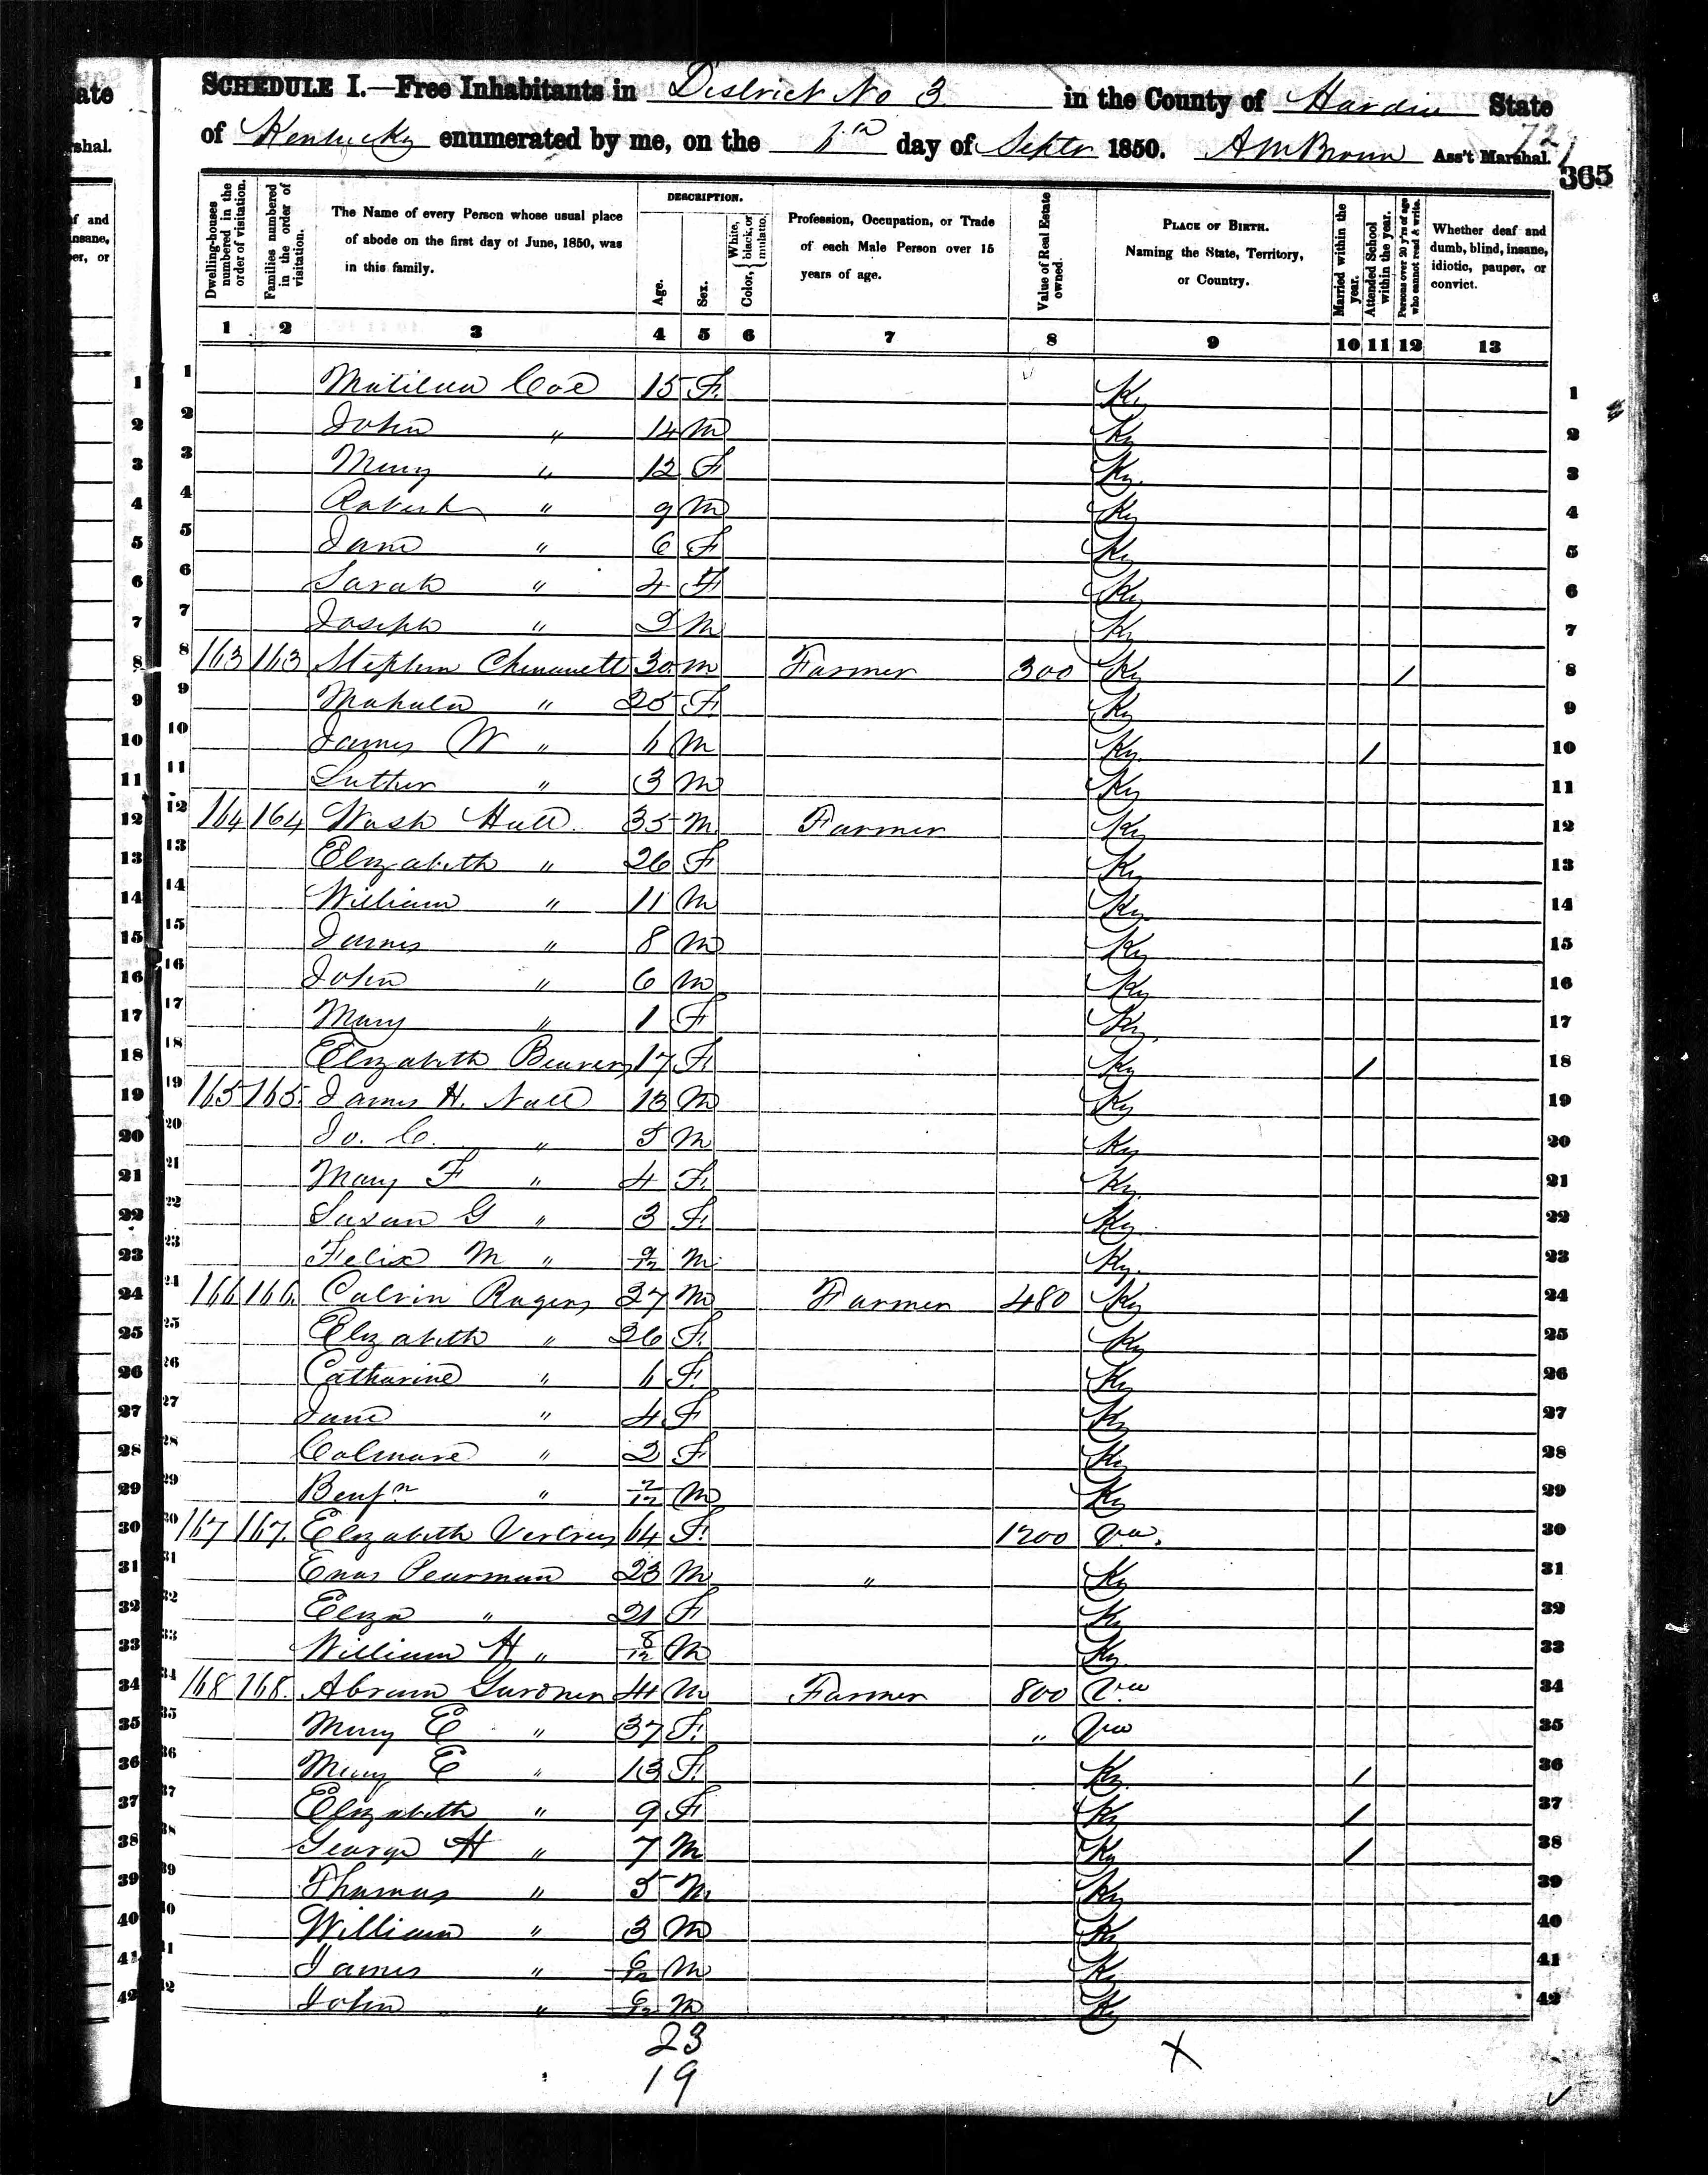 SCHEDULE I.—Free Inhabitants in District No 3 in the County of Hardin State
of Kentucky enumerated by me, on the day of Septr 1850. A M Brown Ass't Marshal.
721
365
Dwelling-houses numbered in the order of visitation.
Families numbered in the order of visitation.
The Name of every Person whose usual place of abode on the first day of June, 1850, was in this family.
DESCRIPTION.
Age.
Sex.
Color, White, black, or mulatto.
Profession, Occupation, or Trade of each Male Person over 15 years of age.
Value of Real Estate owned.
PLACE OF BIRTH. Naming the State, Territory, or Country.
Married within the year.
Attended School within the year.
Persons over 20 y'rs of age who cannot read & write.
Whether deaf and dumb, blind, insane, idiotic, pauper, or convict.
1 2 3 4 5 6 7 8 9 10 11 12 13
1 Matilda Coe 15 F. Ky 1
2 John " 14 M Ky 2
3 Mary " 12 F Ky. 3
4 Robert " 9 M Ky 4
5 Jane " 6 F Ky 5
6 Sarah " 4 F Ky 6
7 Joseph " 2 M Ky 7
8 163 163 Stephen Chenanett 30 M Farmer 300 Ky / 8
9 Mahala " 25 F. Ky 9
10 James W " 6 M Ky. / 10
11 Luther " 3 M Ky 11
12 164 164 Wash Hall 35 M. Farmer Ky 12
13 Elizabeth " 26 F Ky 13
14 William " 11 M Ky. 14
15 James " 8 M Ky 15
16 John " 6 M Ky 16
17 Mary " 1 F Ky. 17
18 Elizabeth Beavers 17 F. Ky / 18
19 165 165. James H. Nall 13 M Ky 19
20 Jo. C. " 5 M Ky 20
21 Mary F " 4 F. Ky. 21
22 Susan G " 3 F. Ky. 22
23 Felix M " 9/12 M. Ky. 23
24 166 166. Calvin Rogers 27 M Farmer 480 Ky 24
25 Elizabeth " 26 F. Ky 25
26 Catharine " 6 F. Ky 26
27 Jane " 4 F Ky 27
28 " 2 F Ky 28
29 Benjn " 2/12 M Ky 29
30 167 167. Elizabeth Vertrees 64 F. 1200 Va. 30
31 Enos Pearman 23 M " Ky 31
32 Eliza " 21 F Ky 32
33 William H " 8/12 M Ky. 33
34 168 168. Abram Gardner 41 M Farmer 800 Va 34
35 Mary E " 37 F. " Va 35
36 Mary E " 13 F. Ky. / 36
37 Elizabeth " 9 F Ky / 37
38 George H " 7 M Ky / 38
39 Thomas " 5 M. Ky 39
40 William " 3 M Ky 40
41 James " 6/12 M Ky 41
42 John " 6/12 M Ky 42
23
19
X